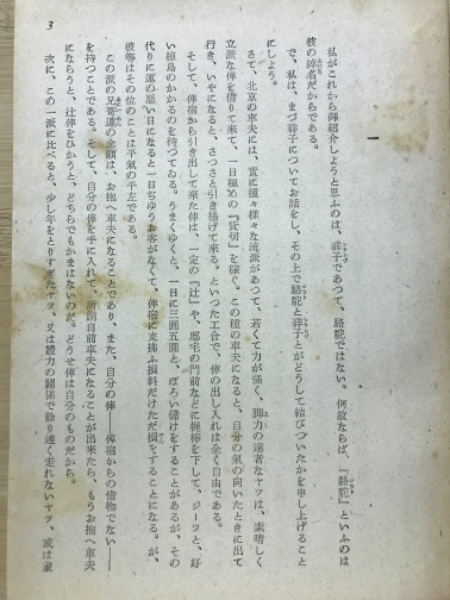 一
私がこれから御紹介しようと思ふのは、祥子であつて、駱駝ではない。何故ならば、『駱駝』といふのは
彼の綽名だからである。
で、私は、まづ祥子についてお話をし、その上で駱駝と祥子とがどうして結びついたかを申し上げること
にしよう。
さて、北京の車夫には、實に種々様々な流派があつて、若くて力が强く、脚力の達者なヤツは、素晴しく
立派な俥を借りて來て、一日極めの『貸切』を稼ぐ。この種の車夫になると、自分の氣の向いたときに出て
行き、いやになると、さつさと引き揚げて來る。といつた工合で、俥の出し入れは全く自由である。
そして、俥宿から引き出して來た俥は、一定の『辻』や、邸宅の門前などに梶棒を下して、ジーツと、好
い椋鳥のかかるのを待つてゐる。うまくゆくと、一日に三圓五圓と、ぼろい儲けをすることがあるが、その
代りに運の惡い日になると一日ぢゆうお客がなくて、俥宿に支拂ふ損料だけただ損をすることになる。が、
彼等はその位のことは平氣の平左である。
この派の兄哥達の念願は、お抱へ車夫になることであり、また、自分の俥――俥宿からの借物でない――
を持つことである。そして、自分の俥を手に入れて、所謂自前車夫になることが出來たら、もうお抱へ車夫
にならうと、辻俥をひかうと、どちらでもかまはないのだ。どうせ俥は自分のものだから。
次に、この一派に比べると、少し年をとりすぎたヤツ、又は體力の關係で餘り速く走れないヤツ、或は家
3